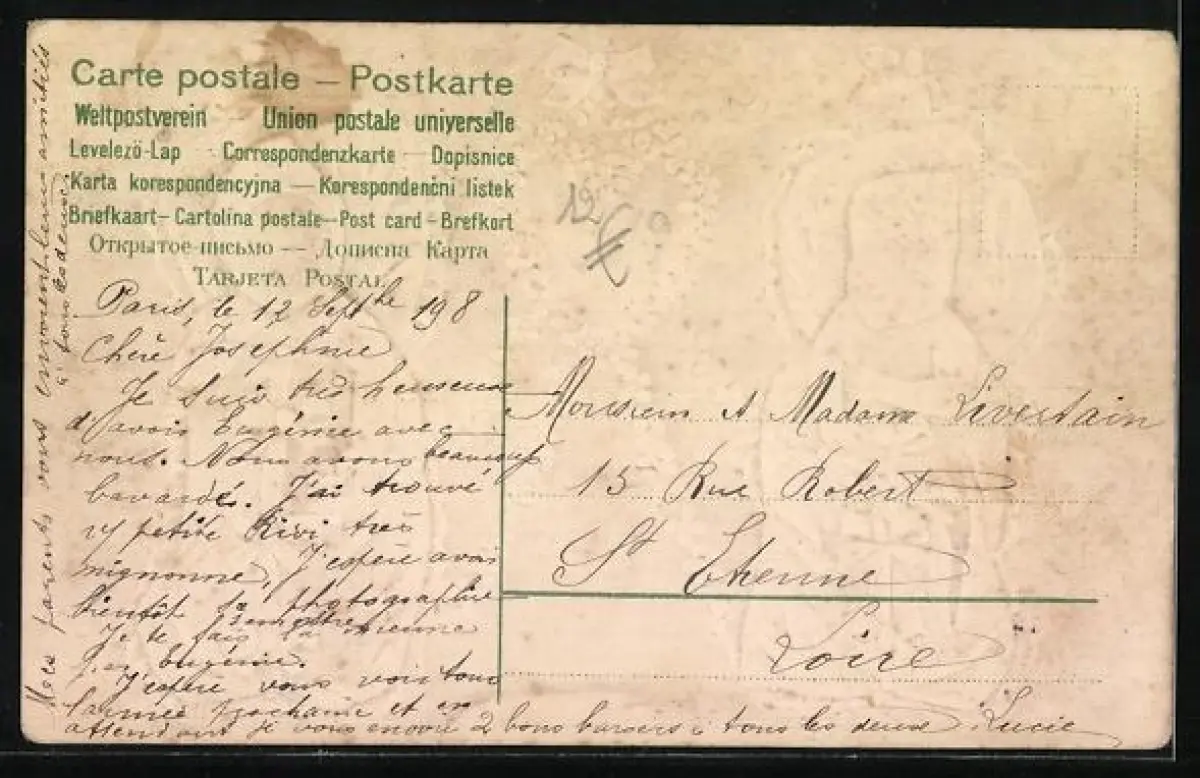 Carte postale – Postkarte
Weltpostverein – Union postale universelle
Levelező-Lap – Correspondenzkarte – Dopisnice
Karta korespondencyjna – Korespondenčni listek
Briefkaart – Cartolina postale – Post card – Brefkort
Открытое письмо –– Дописна Карта
Tarjeta Postal
12
Paris, le 12 Septbre 198
Chère Josephine
Je suis très heureuse
d'avoir Eugénie avec
nous. Nous avons beaucoup
bavardé. J'ai trouvé
petite Kiki très
mignonne, J'espère avoir
bientôt photographie
Je te fais la mienne
Eugénie.
J'espère vous voir tous
l'année prochaine et en
attendant je vous envoie 2 bons baisers à tous les deux Lucie
Mes parents vous envoient leurs amitiés
à tous les deux.
Monsieur et Madame Liverstain
15 Rue Robert
St Etienne
Loire